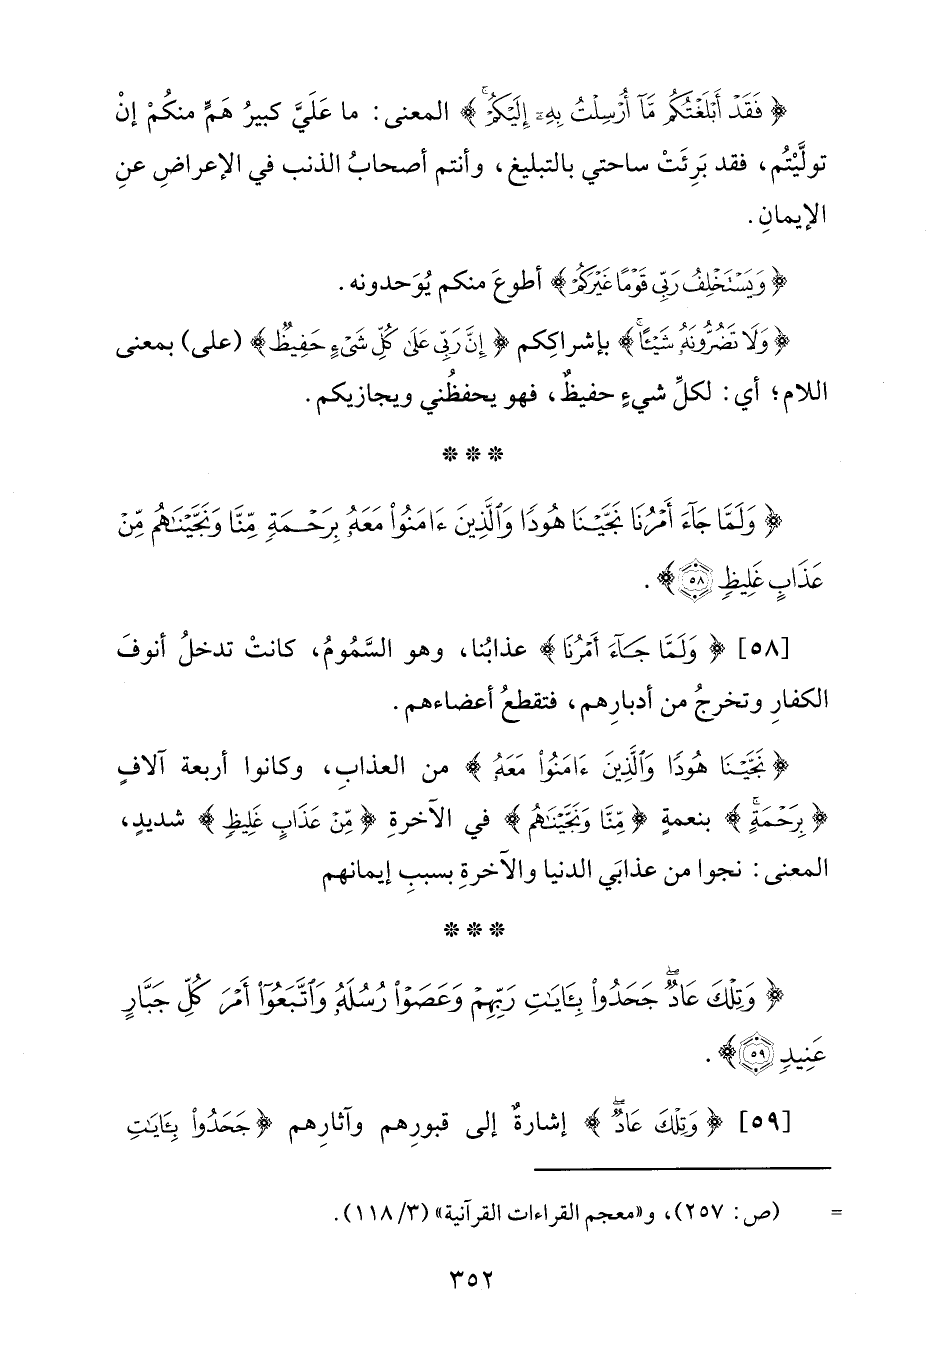 ﴿فَقَدْ أَبْلَغْتُكُم مَّآ أُرْسِلْتُ بِهِۦٓ إِلَيْكُمْۚ﴾ المعنى: ما عَلَيَّ كبيرُ هَمٍّ منكُمْ إنْ
تولَّيْتُم، فقد بَرِئَتْ ساحتي بالتبليغ، وأنتم أصحابُ الذنب في الإعراضِ عنِ
الإيمانِ.
﴿وَيَسْتَخْلِفُ رَبِّي قَوْمًا غَيْرَكُمْ﴾ أطوعَ منكم يُوَحدونه.
﴿وَلَا تَضُرُّونَهُۥ شَيْـًٔاۚ﴾ بإشراكِكم ﴿إِنَّ رَبِّي عَلَىٰ كُلِّ شَيْءٍ حَفِيظٌ﴾ (على) بمعنى
اللام؛ أي: لكلِّ شيءٍ حفيظٌ، فهو يحفظُني ويجازيكم.
* * *
﴿وَلَمَّا جَآءَ أَمْرُنَا نَجَّيْنَا هُودًا وَٱلَّذِينَ ءَامَنُوا۟ مَعَهُۥ بِرَحْمَةٍ مِّنَّا وَنَجَّيْنَٰهُم مِّنْ
عَذَابٍ غَلِيظٍ ٥٨﴾.
[٥٨] ﴿وَلَمَّا جَآءَ أَمْرُنَا﴾ عذابُنا، وهو السَّمُومُ، كانتْ تدخلُ أنوفَ
الكفارِ وتخرجُ من أدبارِهم، فتقطعُ أعضاءهم.
﴿نَجَّيْنَا هُودًا وَٱلَّذِينَ ءَامَنُوا۟ مَعَهُۥ﴾ من العذابِ، وكانوا أربعة آلافٍ
﴿بِرَحْمَةٍۢ﴾ بنعمةٍ ﴿مِّنَّا وَنَجَّيْنَٰهُم﴾ في الآخرةِ ﴿مِّنْ عَذَابٍ غَلِيظٍ﴾ شديدٍ،
المعنى: نجوا من عذابَي الدنيا والآخرةِ بسببِ إيمانهم
* * *
﴿وَتِلْكَ عَادٌۖ جَحَدُوا۟ بِـَٔايَٰتِ رَبِّهِمْ وَعَصَوْا۟ رُسُلَهُۥ وَٱتَّبَعُوٓا۟ أَمْرَ كُلِّ جَبَّارٍ
عَنِيدٍ ٥٩﴾.
[٥٩] ﴿وَتِلْكَ عَادٌۖ﴾ إشارةٌ إلى قبورِهم وآثارِهم ﴿جَحَدُوا۟ بِـَٔايَٰتِ
= (ص: ٢٥٧)، و«معجم القراءات القرآنية» (٣/ ١١٨).
٣٥٢